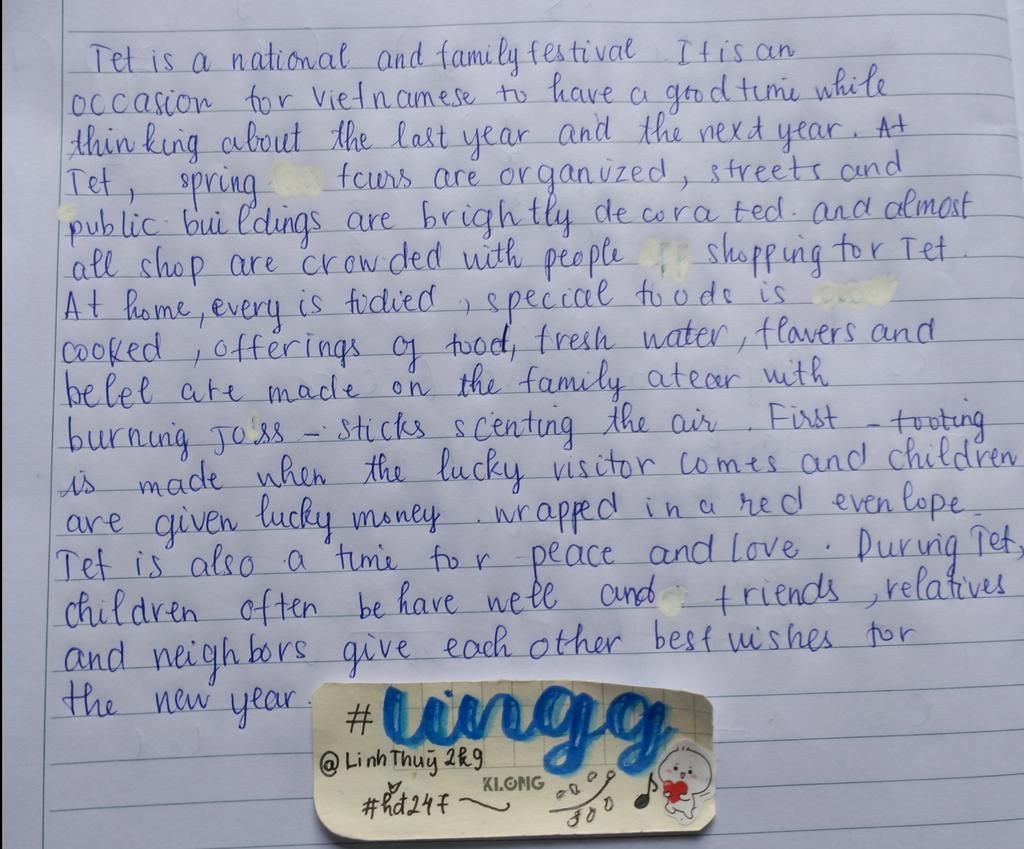 Tet is a national and family festival It is an
occasion for Vietnamese to have a good time while
thinking about the last year and the next year. At
Tet, spring tours are organized, streets and
public buildings are brightly decorated. and almost
all shop are crowded with people shopping for Tet.
At home, every is tidied, special foods is
cooked, offerings of food, fresh water, flowers and
betel are made on the family altar with
burning joss - sticks scenting the air. First - footing
is made when the lucky visitor comes and children
are given lucky money wrapped in a red evenlope.
Tet is also a time for peace and love. During Tet,
children often behave well and friends, relatives
and neighbors give each other best wishes for
the new year.
#lingg
@LinhThuỳ2k9
KLONG
#hđ247